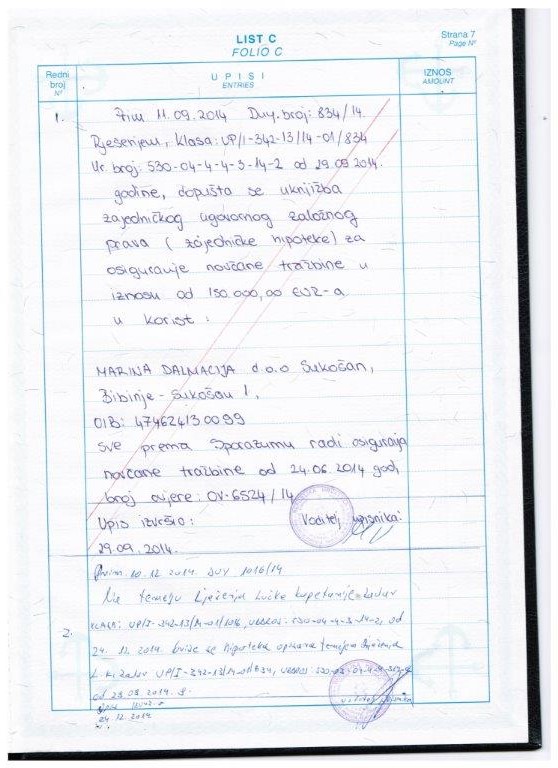 LIST C
FOLIO C
Strana 7
Page Nº
Redni broj
Nº
UPISI
ENTRIES
IZNOS
AMOUNT
1.
Prim 11.09.2014 Duy. broj: 834/14.
Rješenjem, klasa: UP/I-342-13/14-01/834
Ur. broj: 530-04-4-4-3-14-2 od 29.09.2014.
godine, dopušta se uknjižba
zajedničkog ugovornog založnog
prava (zajedničke hipoteke) za
osiguranje novčane tražbine u
iznosu od 150.000,00 EUR-a
u korist:
MARINA DALMACIJA d.o.o Sukošan,
Bibinje - Sukošan 1,
OIB: 47462413 0099
sve prema Sporazumu radi osiguranja
novčane tražbine od 24.06.2014 god,
broj ovjere: OV-6524/14
Upis izvršio: Voditelj upisnika:
29.09.2014.
10.12.2014. DUY 1016/14
Na temelju Rješenja Lučke kapetanije Zadar
2.
KLASA: UP/I-342-13/14-01/1016, od
24.12.2014. briše se hipoteka upisana temeljem Rješenja
L.K. Zadar UP/I-342-13/14-01/834,
od 29.09.2014. g.
24.12.2014.